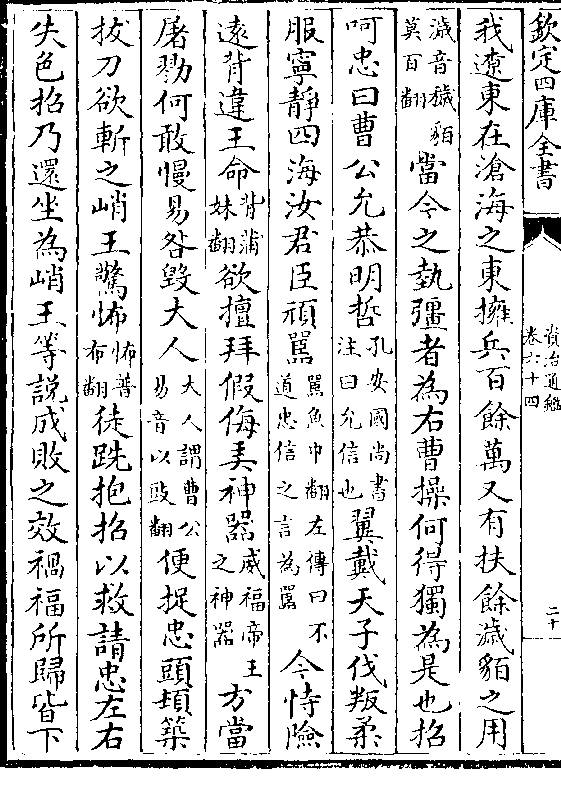 欽定四庫全書
資治通鑑
卷六十四
二十
我遼東在滄海之東擁兵百餘萬又有扶餘濊貊之用
濊音穢貊
莫百翻
當今之埶彊者為右曹操何得獨為是也招
呵忠曰曹公允恭明哲
孔安國尚書
注曰允信也
翼戴天子伐叛柔
服寧靜四海汝君臣頑嚚
嚚魚巾翻左傳曰不
道忠信之言為嚚
今恃險
遠背違王命
背蒲
妹翻
欲擅拜假侮弄神器
威福帝王
之神器
方當
屠勠何敢慢易咎毀大人
大人謂曹公
易音以豉翻
便捉忠頭頓築
拔刀欲斬之峭王驚怖
怖普
布翻
徒跣抱招以救請忠左右
失色招乃還坐為峭王等說成敗之效禍福所歸皆下